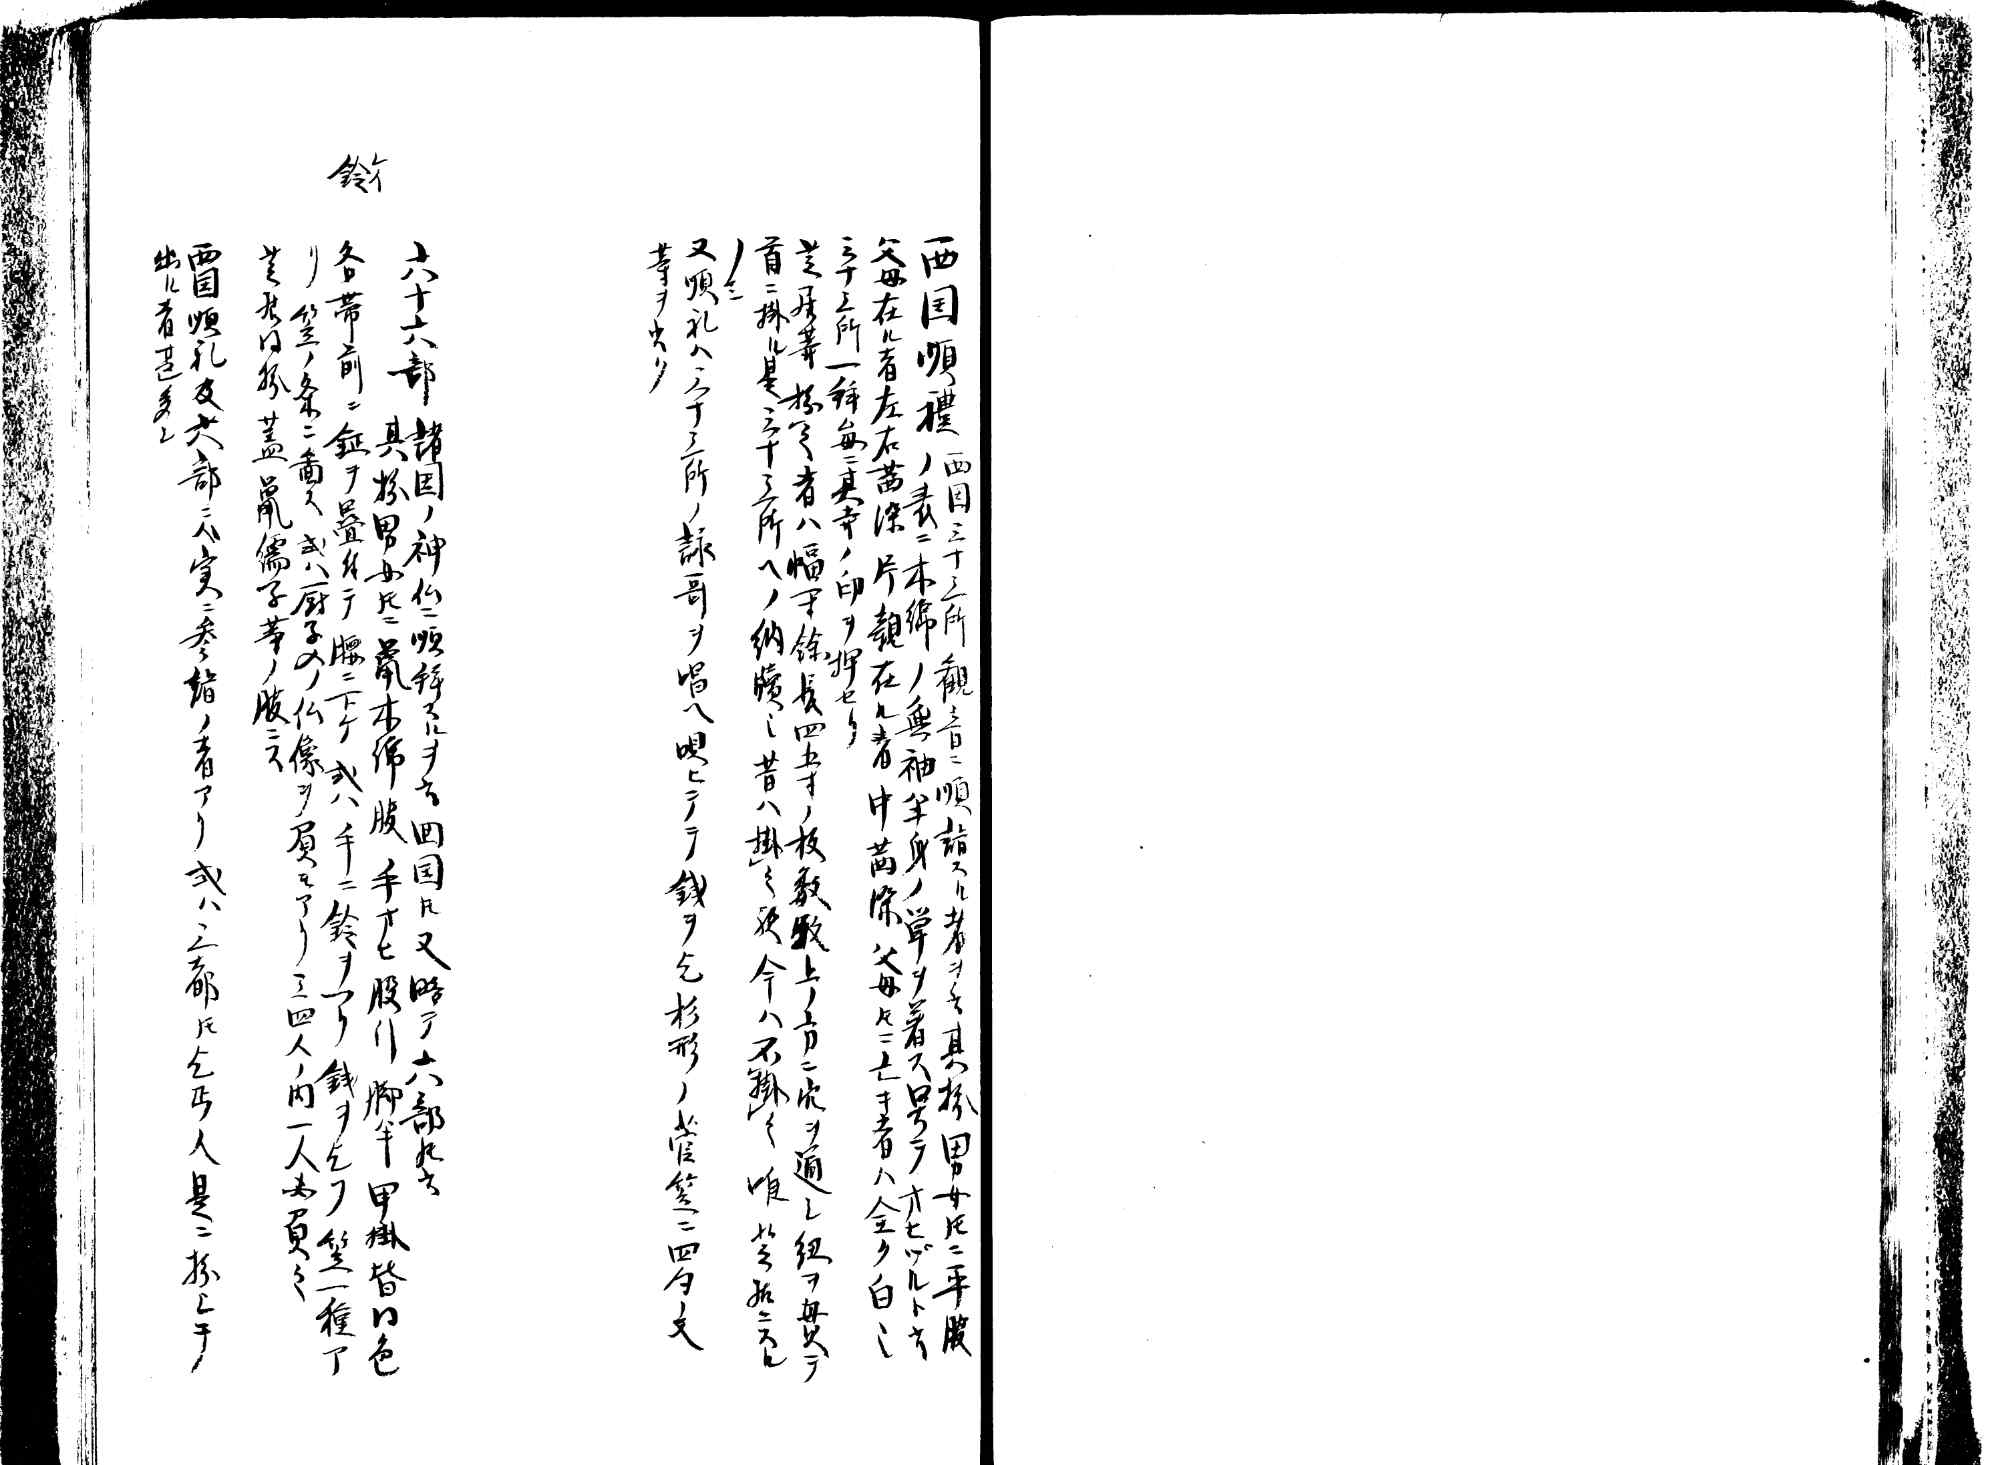 西国順禮 西国三十三所観音ニ順詣スル者ヲ云其扮男女トモニ平服
ノ表ニ木綿ノ無袖半身ノ単ヲ着ス号テオヒヅルト云
父母在ル者左右茜染片親在ル者中茜染父母トモニ亡キ者ハ全ク白シ
三十三所一拝毎ニ其寺ノ印ヲ押セリ
芝居等扮之者ハ幅一寸余長四五寸ノ板数段上ノ方ニ穴ヲ通シ紐ヲ貫テ
首ニ掛ル是三十三所ヘノ納牘也昔ハ掛之歟今ハ不掛之唯芝居ニスル
ノミ
又順礼ハ三十三所ノ詠哥ヲ唱ヘ唄ヒテ銭ヲ乞杉形ノ菅笠ニ四句ノ文
等ヲ書リ
六十六部 諸国ノ神仏ニ順拝スルヲ云回国トモ又略テ六部トモ云
其扮男女トモニ鼠木綿服手オヒ股引脚半甲掛皆同色
各帯前ニ鉦ヲ畳付テ腰ニ下ケ或ハ手ニ鈴ヲフリ銭ヲ乞フ笠一種ア
鈴イ
リ笠ノ条ニ図ス或ハ厨子入ノ仏像ヲ負モアリ三四人ノ内一人必負之
芝居同扮蓋鼠儒子等ノ服ニス
西国順礼及六部ニハ実ニ参詣ノ者アリ或ハ三都トモ乞丐人是ニ扮シテ
出ル者甚多シ